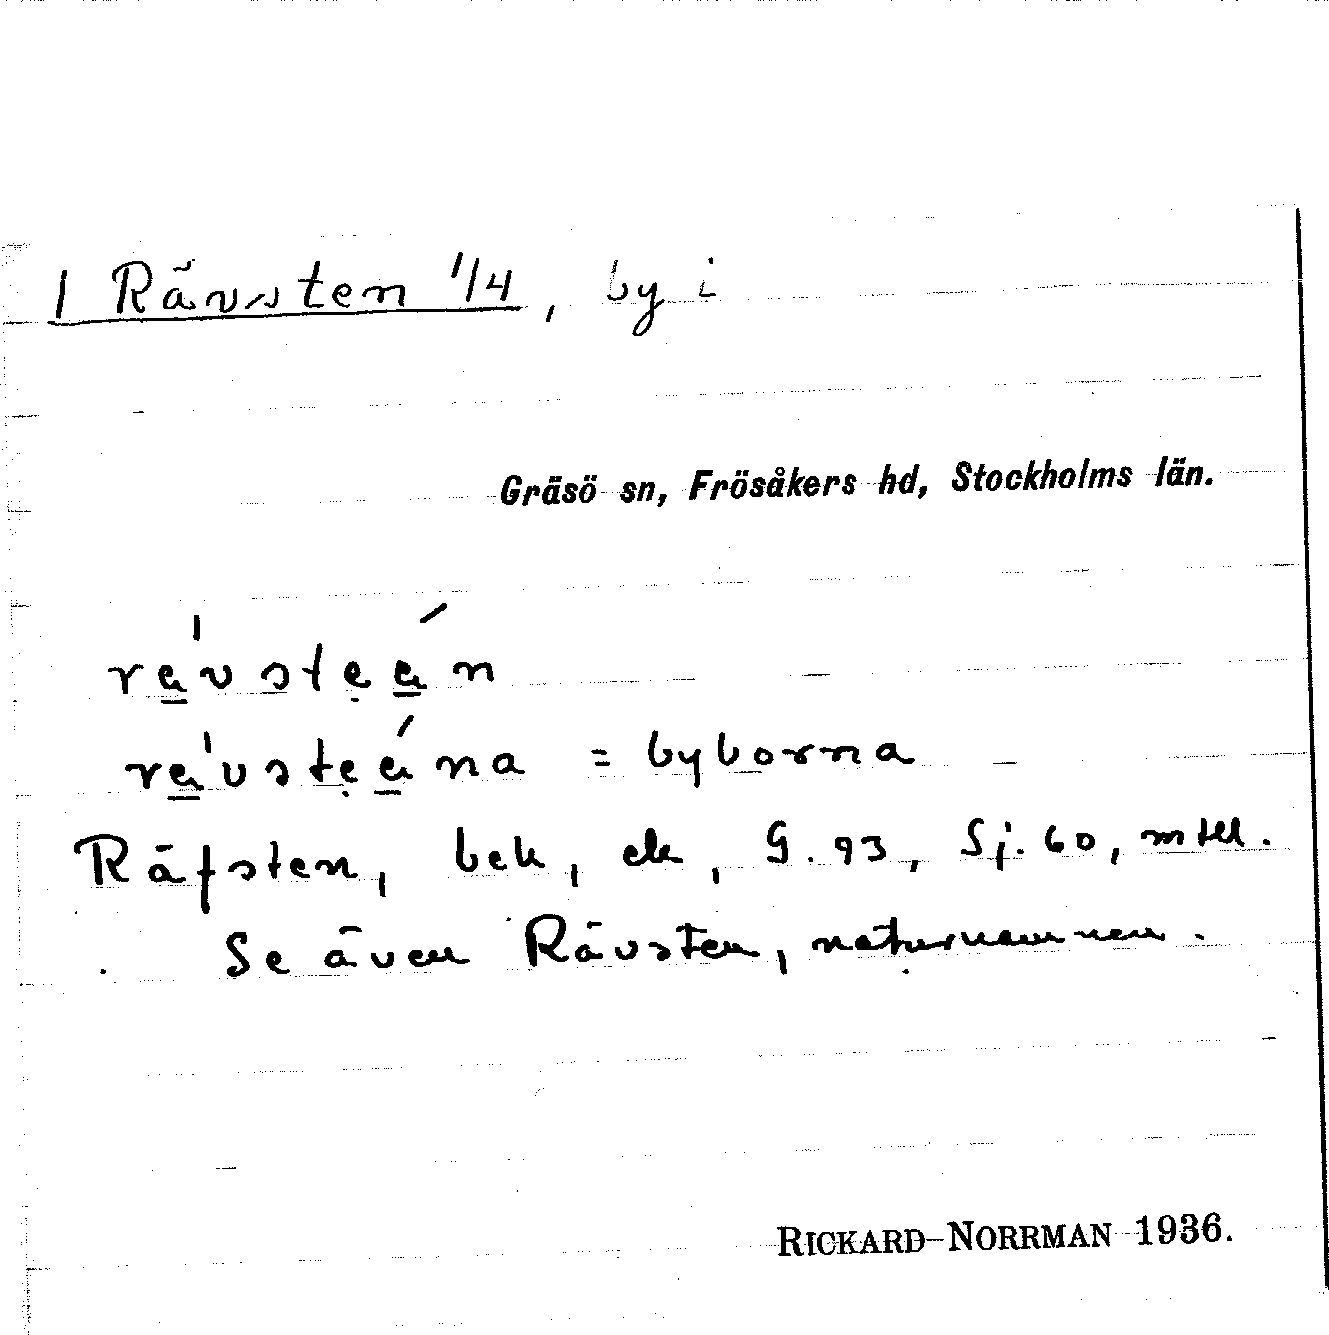 1 Rävsten 1/4, by i
Gräsö sn, Frösåkers hd, Stockholms län.
rävsteän
rävsteäna = byborna
Räfsten, bek, ek, G. 93, Sj. 60, mtll.
Se även Rävsten, naturnamnen.
RICKARD NORRMAN 1936.